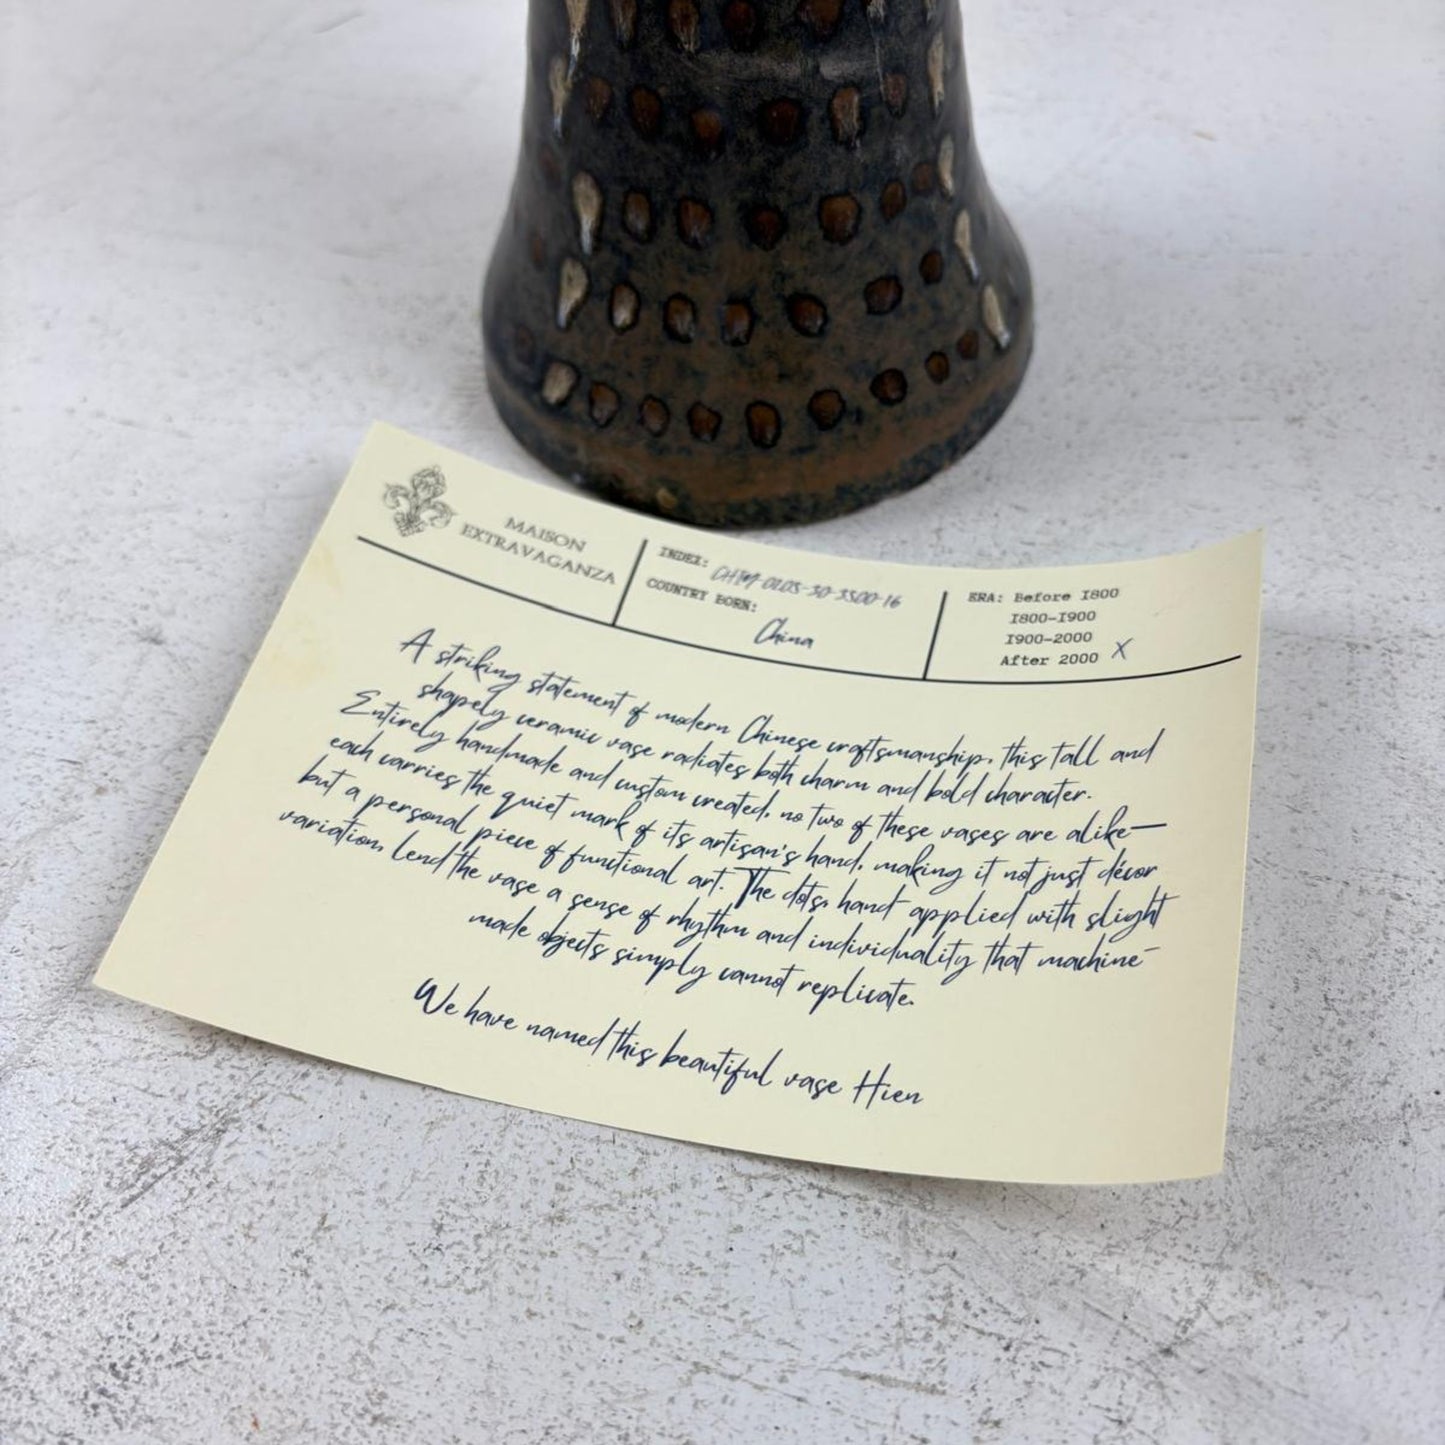 MAISON
EXTRAVAGANZA
INDEX:
COUNTRY BORN:
China
ERA: Before 1800
1800-1900
1900-2000
After 2000 X
A striking statement of modern Chinese craftsmanship, this tall and
shapely ceramic vase radiates both charm and bold character.
Entirely handmade and custom created, no two of these vases are alike—
each carries the quiet mark of its artisan's hand, making it not just décor
but a personal piece of functional art. The dots, hand applied with slight
variation, lend the vase a sense of rhythm and individuality that machine-
made objects simply cannot replicate.
We have named this beautiful vase Hien